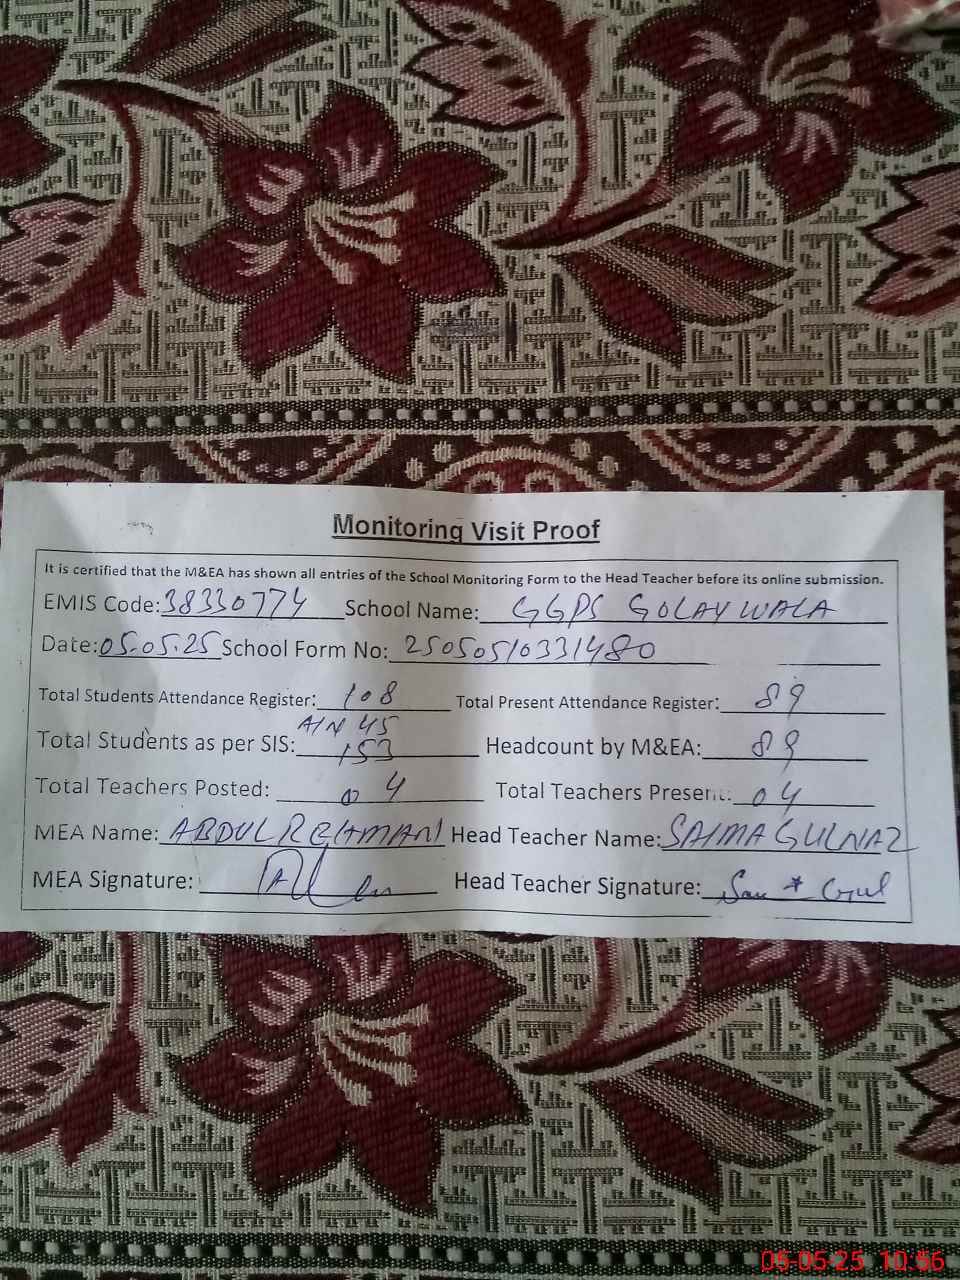 Monitoring Visit Proof
It is certified that the M&EA has shown all entries of the School Monitoring Form to the Head Teacher before its online submission.
EMIS Code: 38330774 School Name: GGPS GOLAY WALA
Date: 05.05.25 School Form No: 25050510331480
Total Students Attendance Register: 108 Total Present Attendance Register: 89
A/N 45
Total Students as per SIS: 153 Headcount by M&EA: 89
Total Teachers Posted: 04 Total Teachers Present: 04
MEA Name: ABDUL REHMAN Head Teacher Name: SAIMA GULNAZ
MEA Signature: Head Teacher Signature:
05-05-25 10:56